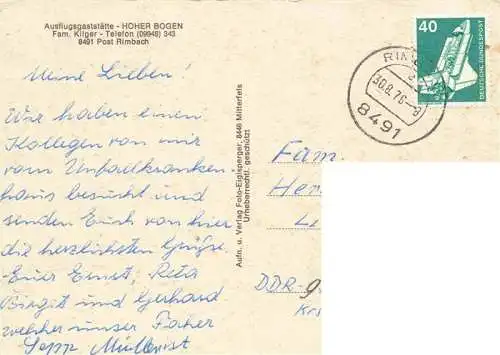 Ausflugsgaststätte - HOHER BOGEN
Fam. Kilger - Telefon (09948) 343
8491 Post Rimbach
Meine Lieben!
Wir haben einen
Kollegen von mir
vom Unfallkranken
haus besucht und
senden Euch von hier
die herzlichsten Grüße.
Euer Ernst, Reta
Birgit und Gerhard
welcher unser Fahrer
Sepp ist
Aufn. u. Verlag Foto-Eiglsperger, 8446 Mitterfels
Urheberrechtl. geschützt
40
DEUTSCHE BUNDESPOST
RIM
30.8.76-9
8491
Fam.
Her
DDR-9
Kr